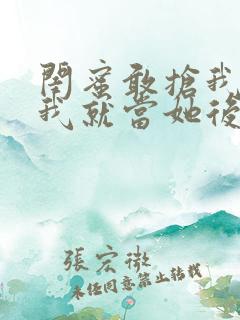 閨蜜敢搶我
我就當她後
張宏微
未經同意禁止轉載